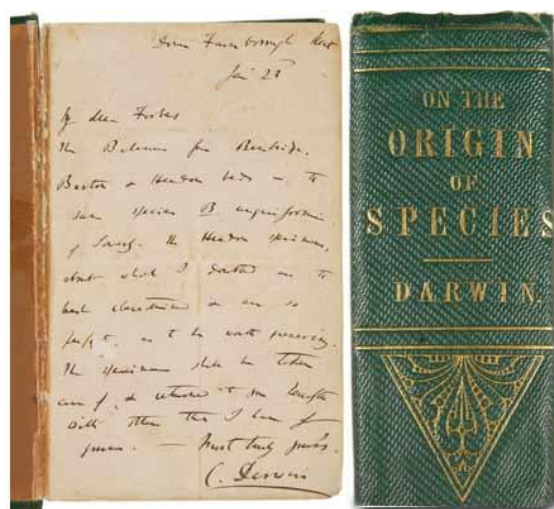 Down Farnborough Kent
Jan 23
My dear Forbes
The Balanus from Bembridge,
Barton & Headon beds is the
same species B. unguiformis
of Sowerby. The Headon specimens,
about which I doubted are the
best characterised & are so
perfect, as to be worth preserving.
The specimens shall be taken
care of, & returned to you
with those that I have of
yours. — Most truly yours.
C. Darwin
ON THE
ORIGIN
OF
SPECIES
DARWIN.